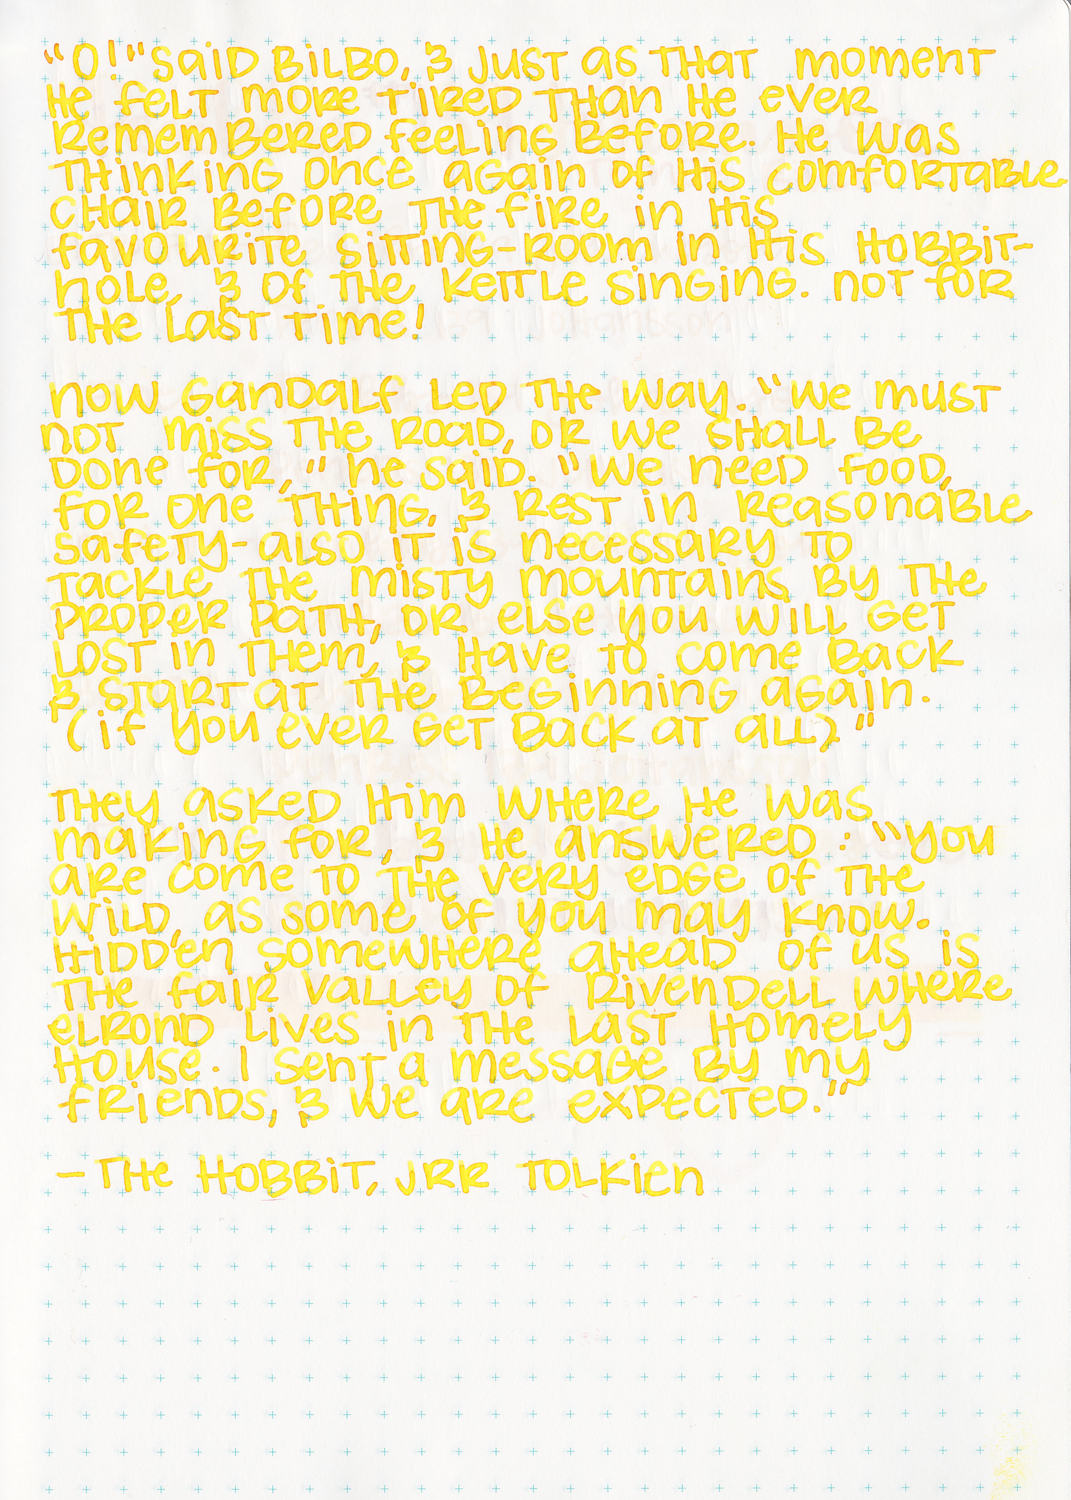 "O!" said Bilbo, & just as that moment
he felt more tired than he ever
remembered feeling before. He was
thinking once again of his comfortable
chair before the fire in his
favourite sitting-room in his hobbit-
hole, & of the kettle singing. Not for
the last time!
Now Gandalf led the way. "We must
not miss the road, or we shall be
done for," he said. "We need food,
for one thing, & rest in reasonable
safety- also it is necessary to
tackle the Misty Mountains by the
proper path, or else you will get
lost in them, & have to come back
& start at the beginning again.
(if you ever get back at all)"
They asked him where he was
making for, & he answered: "You
are come to the very edge of the
Wild, as some of you may know.
Hidden somewhere ahead of us is
the fair valley of Rivendell where
Elrond lives in the Last Homely
House. I sent a message by my
friends, & we are expected."
- The Hobbit, JRR Tolkien